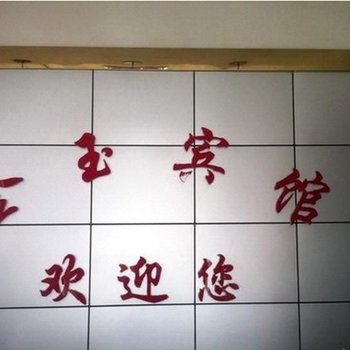 玉宾馆
欢迎您